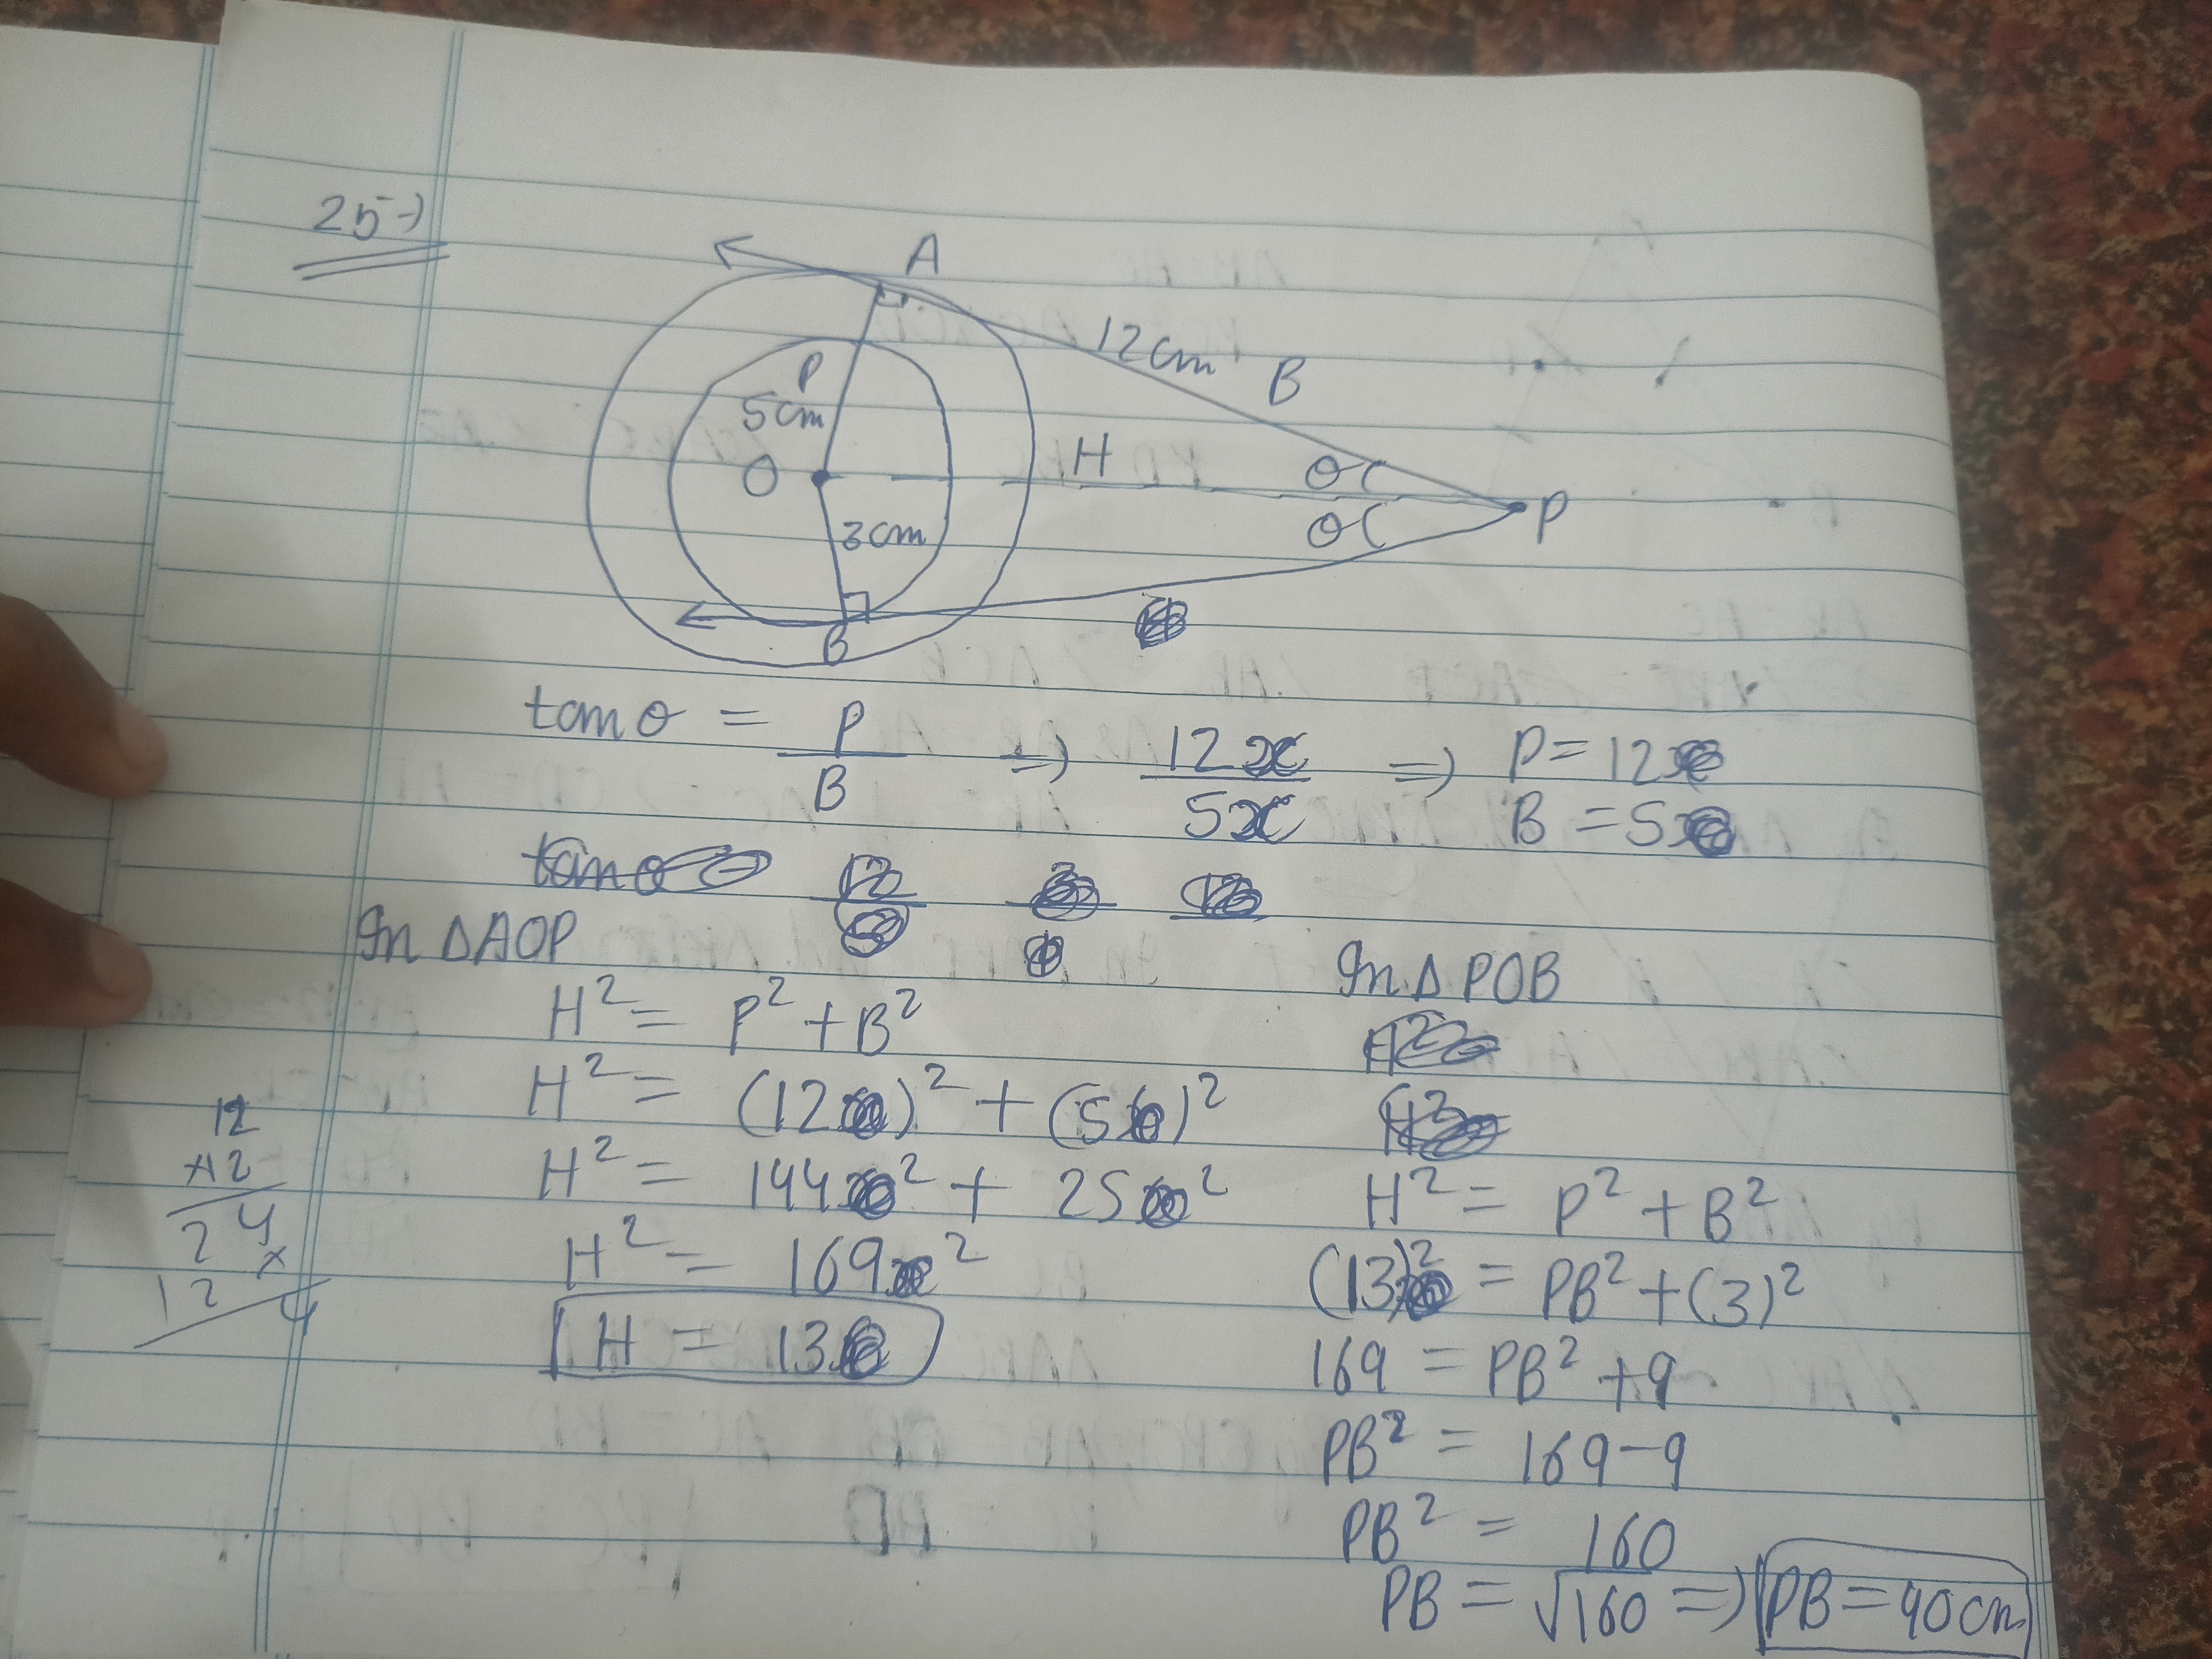 25→
A
12cm
B
P
5cm
H
θ
O
P
3cm
θ
B
tan θ = P/B ⇒ 12x/5x ⇒ P = 12
B = 5
In ΔAOP
In ΔPOB
H² = P² + B²
H² = (12)² + (5)²
H² = 144 + 25
H² = 169
H = 13
12
×12
24
12×
4
H² = P² + B²
(13)² = PB² + (3)²
169 = PB² + 9
PB² = 169 - 9
PB² = 160
PB = √160 ⇒ PB = 40cm